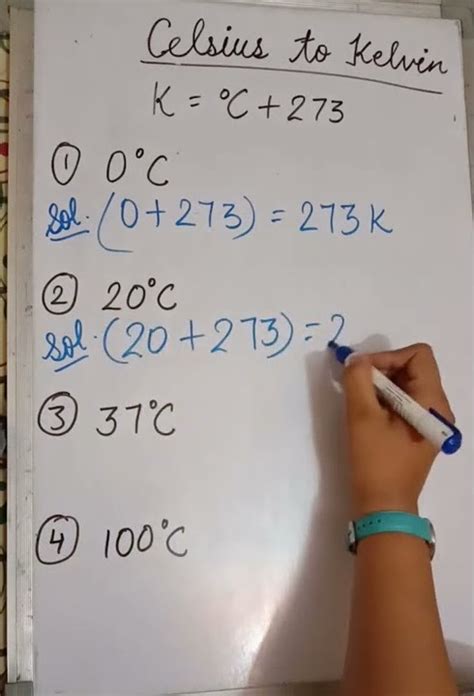 Celsius to Kelvin
K = °C + 273
① 0°C
Sol. (0 + 273) = 273 K
② 20°C
Sol. (20 + 273) = 2
③ 37°C
④ 100°C